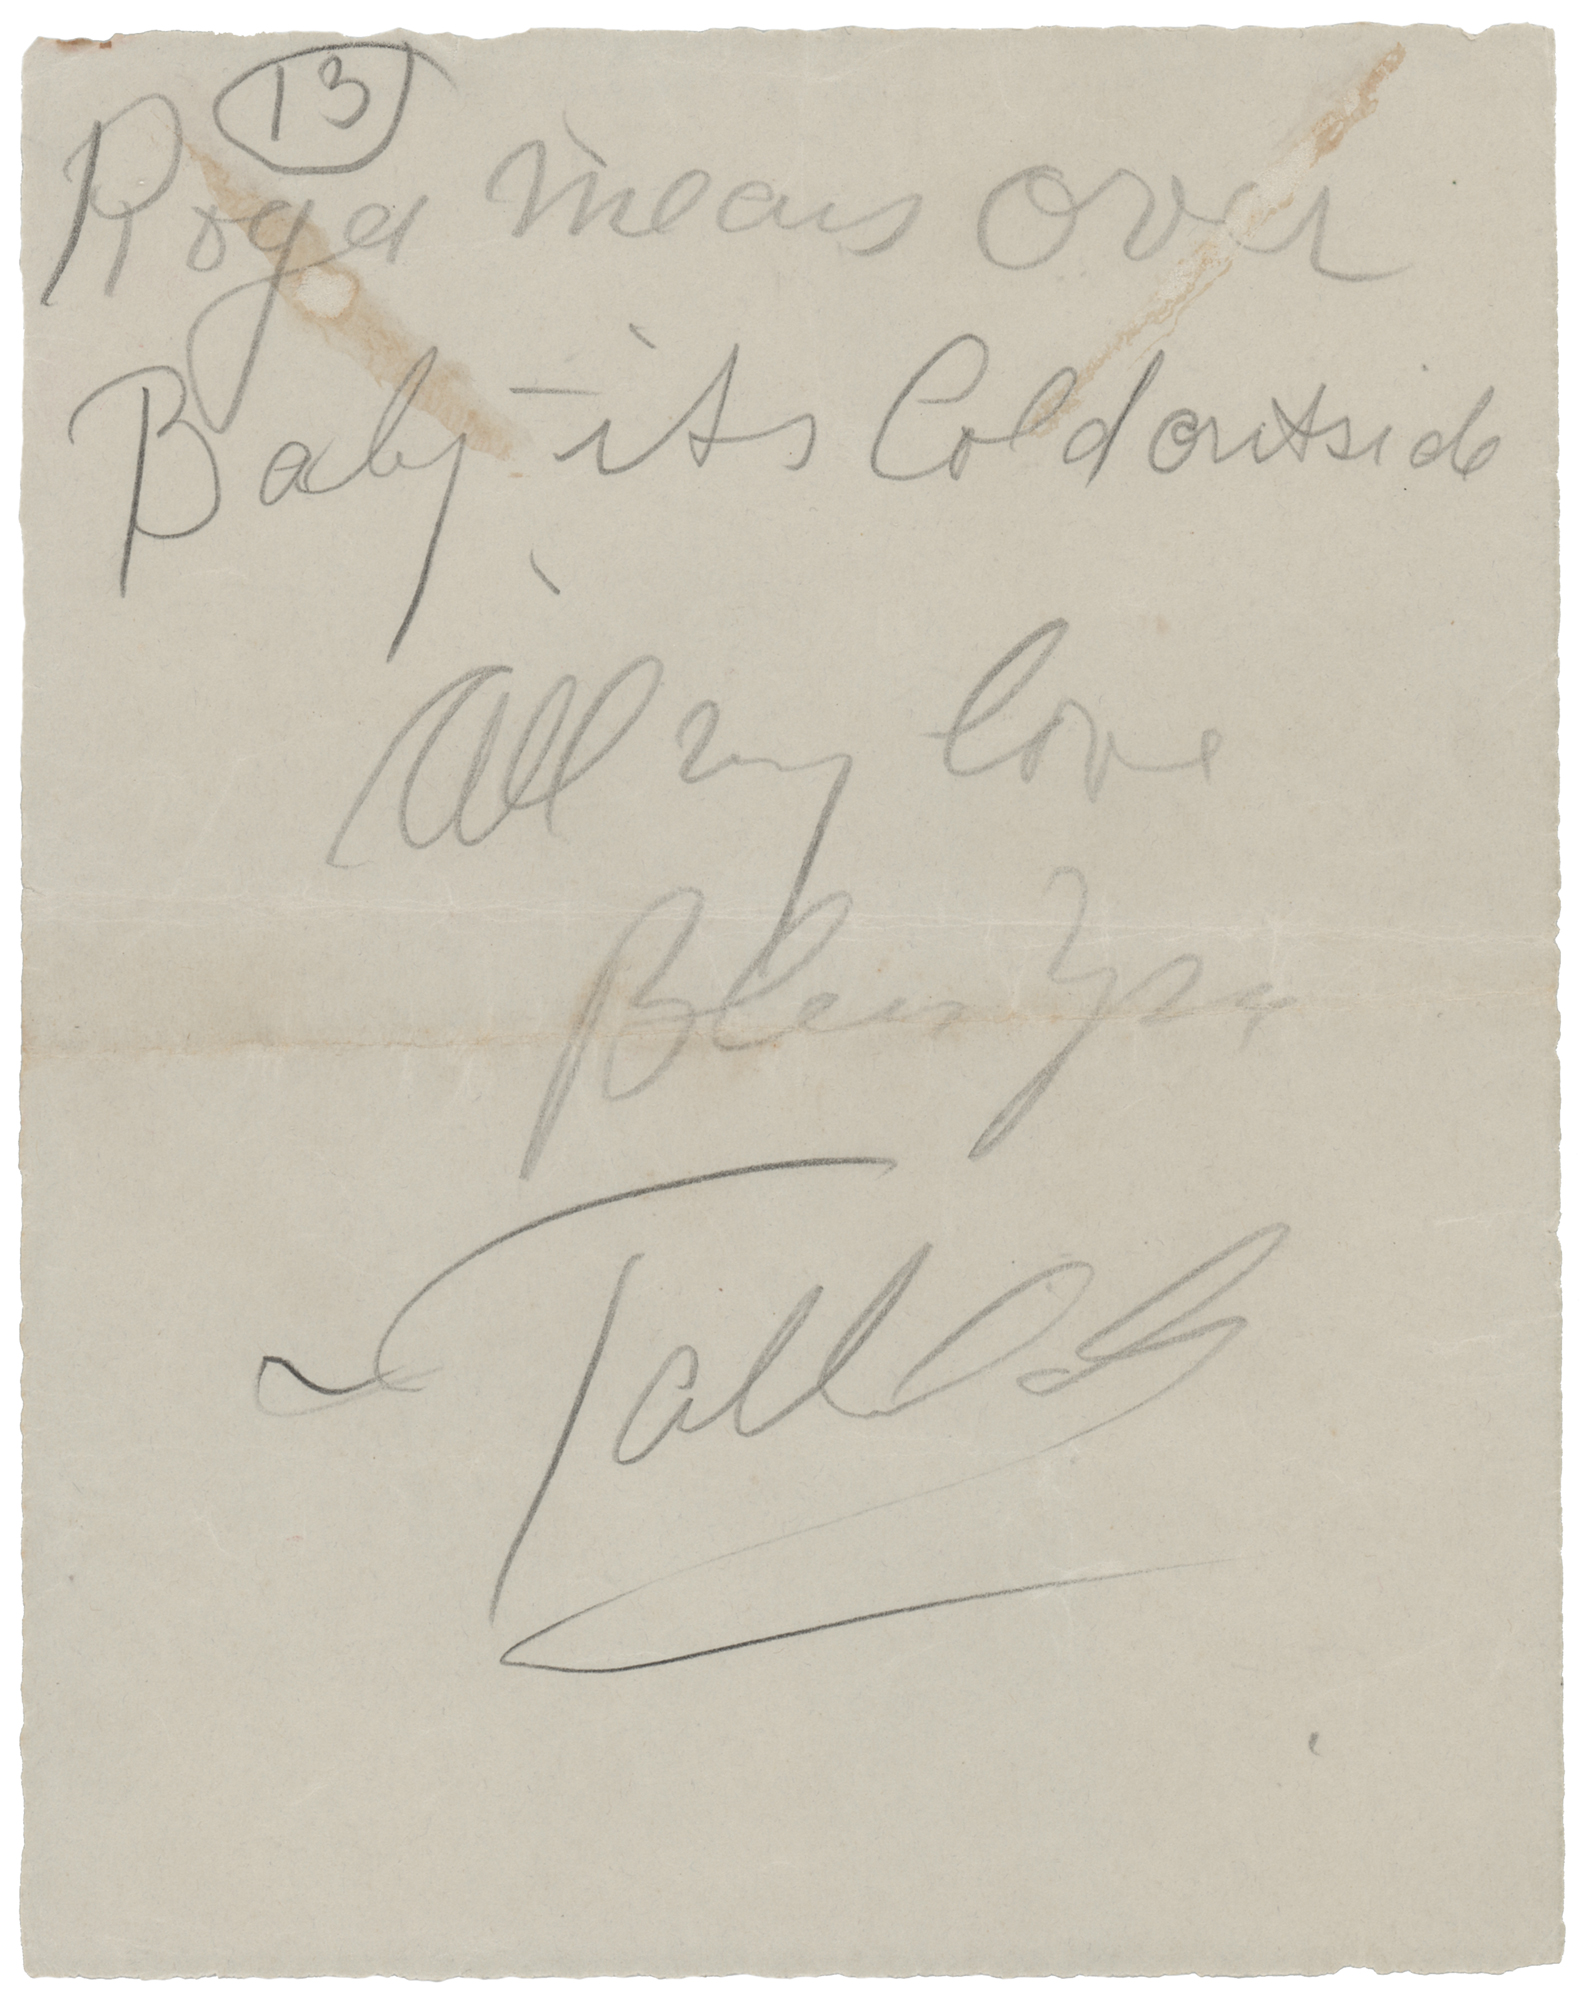 13
Roger means over
Baby - its Cold outside
All my love
Bless you
Tallulah